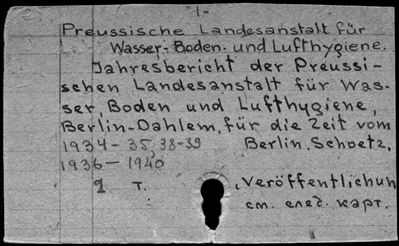 -1-
Preussische Landesanstalt für
Wasser-, Boden- und Lufthygiene.
Jahresbericht der Preussi-
schen Landesanstalt für Was-
ser, Boden und Lufthygiene,
Berlin-Dahlem, für die Zeit vom
1934-35, 38-39 Berlin, Schoetz,
1936-1940
2 т. (Veröffentlichun
см. след. карт.